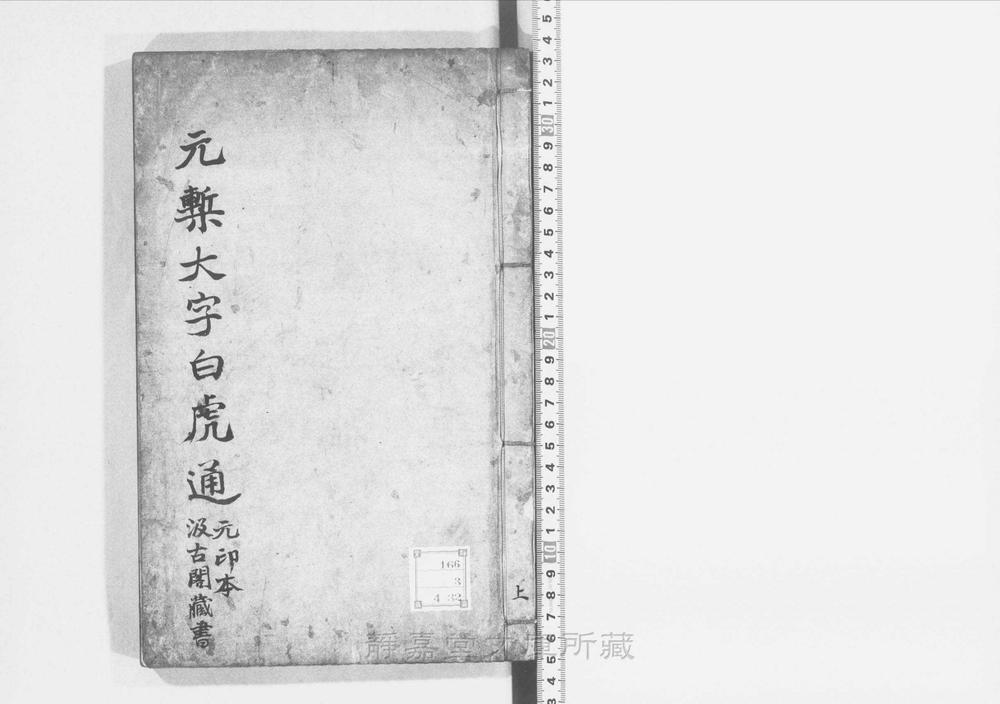 元槧大字白虎通
元印本
汲古閣藏書
上
166
3
4 32
靜嘉堂文庫所藏
5 4 3 2 1 30 9 8 7 6 5 4 3 2 1 20 9 8 7 6 5 4 3 2 1 10 9 8 7 6 5 4 3